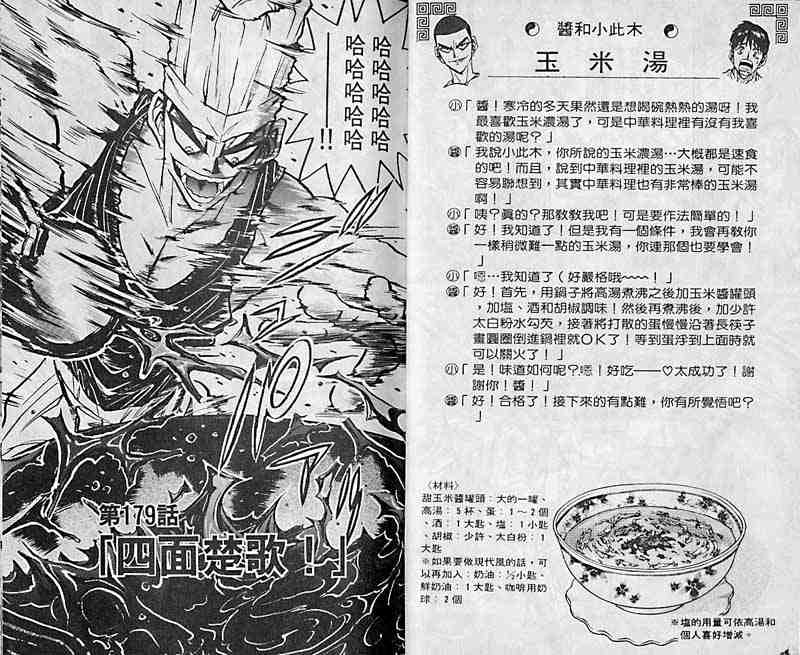 醬和小此木
玉米湯
小「醬！寒冷的冬天果然還是想喝碗熱熱的湯呀！我
最喜歡玉米濃湯了，可是中華料理裡有沒有我喜
歡的湯呢？」
醬「我說小此木，你所說的玉米濃湯…大概都是速食
的吧！而且，說到中華料理裡的玉米湯，可能不
容易聯想到，其實中華料理也有非常棒的玉米湯
啊！」
小「咦？真的？那教教我吧！可是要作法簡單的！」
醬「好！我知道了！但是我有一個條件，我會再教你
一樣稍微難一點的玉米湯，你連那個也要學會！
」
小「嗯…我知道了（好嚴格哦~~~！」
醬「好！首先，用鍋子將高湯煮沸之後加玉米醬罐頭
，加塩、酒和胡椒調味！然後再煮沸後，加少許
太白粉水勾芡，接著將打散的蛋慢慢沿著長筷子
畫圓圈倒進鍋裡就OK了！等到蛋浮到上面時就
可以關火了！」
小「是！味道如何呢？嗯！好吃——♡太成功了！謝
謝你！醬！」
醬「好！合格了！接下來的有點難，你有所覺悟吧？
」
〈材料〉
甜玉米醬罐頭：大的一罐、
高湯：5杯、蛋：1～2個
、酒：1大匙、塩：1小匙
、胡椒：少許、太白粉：1
大匙
※如果要做現代風的話，可
以再加入：奶油：½小匙、
鮮奶油：1大匙、咖啡用奶
球：2個
※塩的用量可依高湯和
個人喜好增減。
哈哈哈哈哈
哈哈哈哈哈
——!!
第179話
「四面楚歌！」